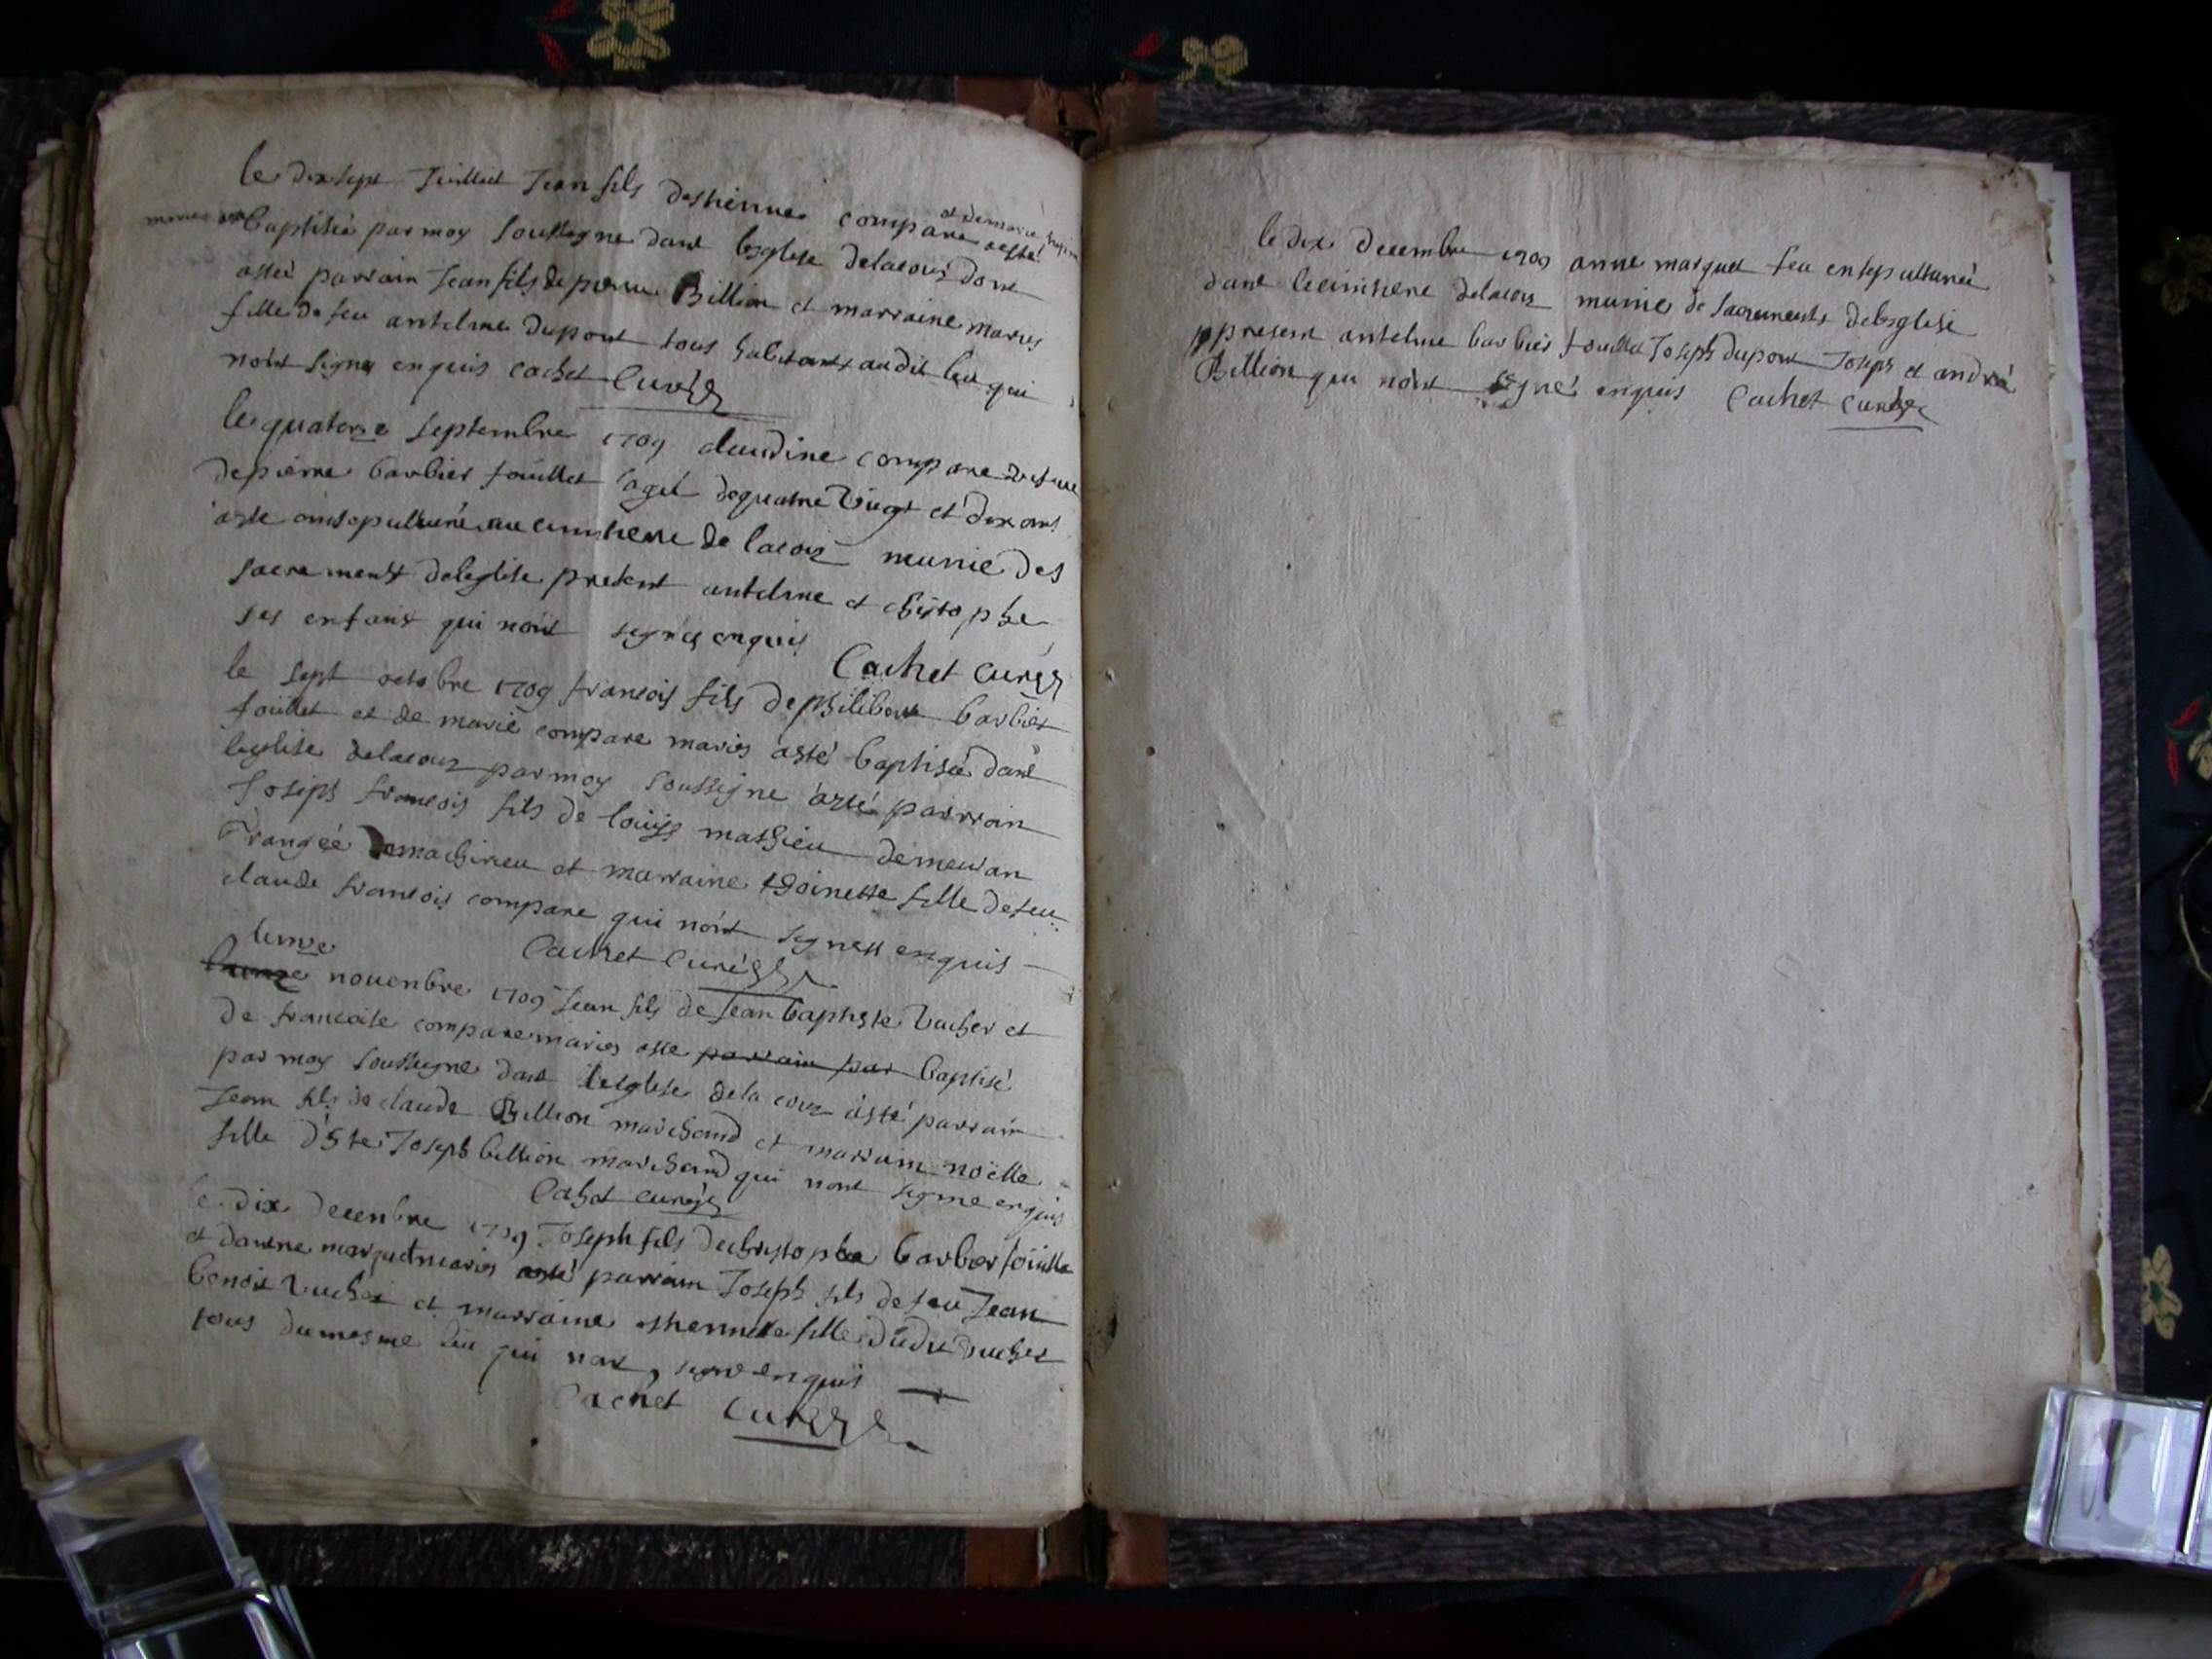 le dix sept Juillet Jean fils destienne compare et de marie
baptiséé par moy soussigne dans lesglise delacour dont
astéé parrain Jean fils de pierre Billion et marraine marie
fille de feu antelme dupont tous habitants audit lieu qui
nont signe enquis cachet Curéé
le quatorze septembre 1709 claudine compare vefue
depierre barbier fouillet agéé dequatre vingt et dix ans
aste ensepulturéé au cimitiere de lacour munie des
sacrements deleglise present antelme et christophe
ses enfants qui nont signes enquis
Cachet curéé
le sept octobre 1709 francois fils dephilibert barbier
fouillet et de marie compare maries asté baptiséé dans
leglise delacour par moy soussigne asté parrain
Joseph francois fils de louys mathieu demeuran
a machirieu et marraine thoinette fille defeu
claude francois compare qui nont signes enquis
Cachet Curéé
lunze
novenbre 1709 Jean fils de Jean baptiste Vucher et
de francoise compare maries aste parrain par baptisé
par moy soussigne dans lesglise dela cour asté parrain
Jean fils de claude Billion marchand et marraine noëlle
fille dste Joseph billion marchand qui nont signe enquis
Cachet curéé
le dix decenbre 1709 Joseph fils dechristophe barbier fouillet
et danne marquet maries asté parrain Joseph fils de feu Jean
benoit Vucher et marraine esthennette fille dudit vucher
tous dumesme lieu qui nont signe enquis
Cachet Curéé
le dix decembre 1709 anne marquet feu ensepulturéé
dans lecimitiere delacour munie de sacrements delesglise
present antelme barbier fouillet Joseph dupont Joseph et andréé
Billion qui nont signé enquis Cachet curéé